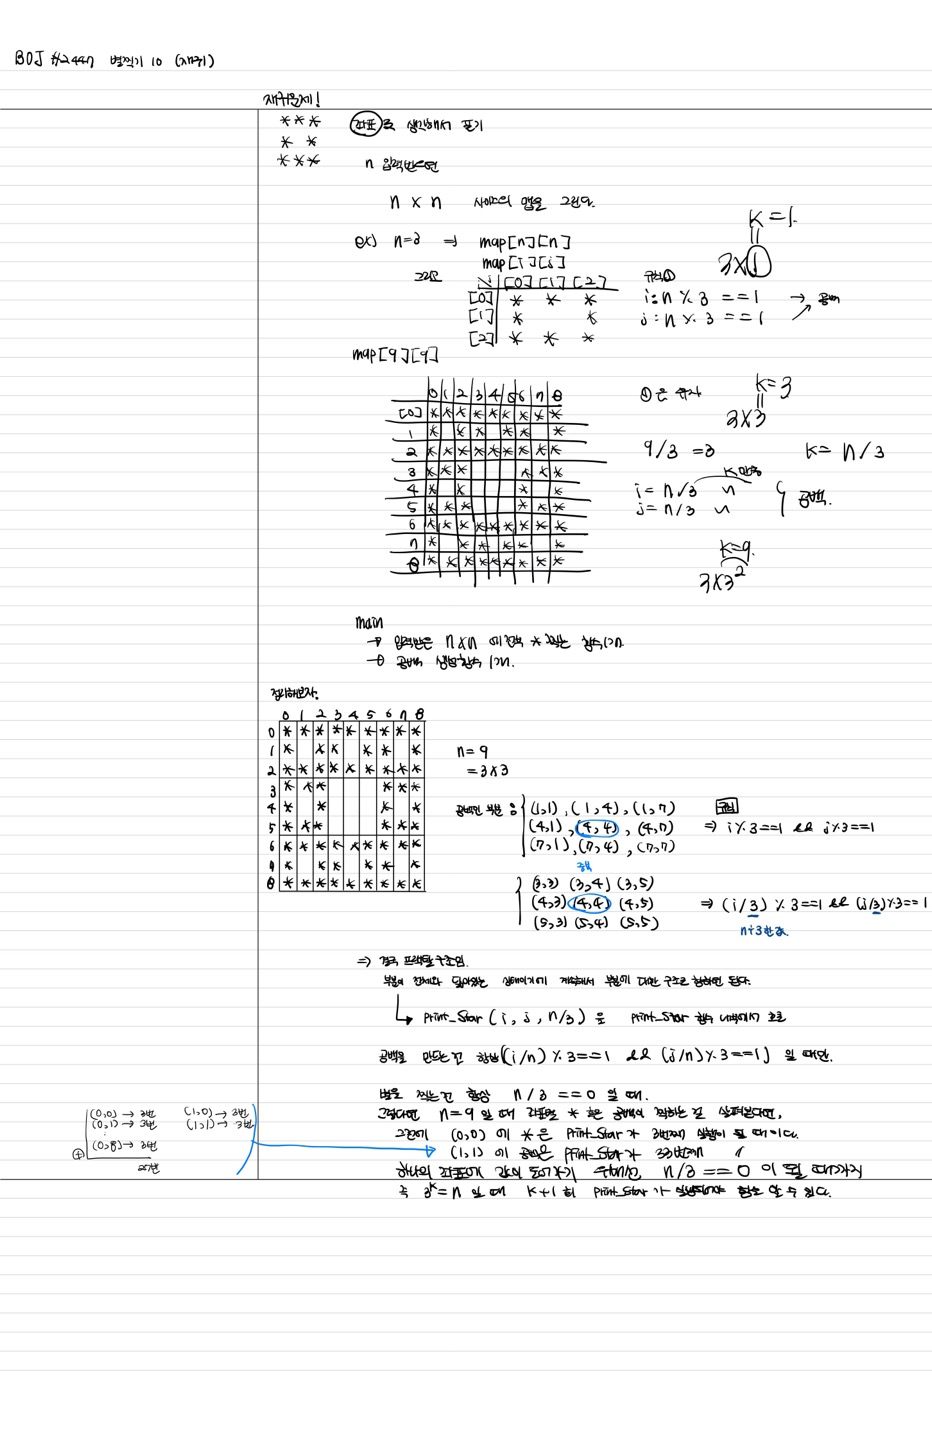 BOJ #2447 별찍기 10 (재귀)
재귀문제!
* * *
*   *
* * *
좌표로 생각해서 풀기
n 입력받으면
n x n 사이즈의 맵을 그린다.
ex) n=3 => map[n][n]
map[i][j]
그리고
i [0] [1] [2]
[0] * * *
[1] *   *
[2] * * *
K=1
3x1
규칙①
i : n % 3 == 1 → 공백
j : n % 3 == 1
map[9][9]
0 1 2 3 4 5 6 7 8
[0] * * * * * * * * *
1 *   * *   * *   *
2 * * * * * * * * *
3 * * *       * * *
4 *   *       *   *
5 * * *       * * *
6 * * * * * * * * *
7 *   * *   * *   *
8 * * * * * * * * *
①은 유지
K=3
3x3
9/3 =3 K= n/3
K만큼
i = n/3 ~
j = n/3 ~
공백.
K=9.
3x3²
main
→ 입력받은 n x n 에 전체 * 찍는 함수 1개.
→ 공백 생성함수 1개.
정리해보자.
0 1 2 3 4 5 6 7 8
0 * * * * * * * * *
1 *   * *   * *   *
2 * * * * * * * * *
3 * * *       * * *
4 *   *       *   *
5 * * *       * * *
6 * * * * * * * * *
7 *   * *   * *   *
8 * * * * * * * * *
n = 9
= 3x3
공백인 부분 :
(1,1), (1,4), (1,7)
(4,1), (4,4), (4,7)
(7,1), (7,4), (7,7)
규칙
=> i%3==1 && j%3==1
(3,3) (3,4) (3,5)
(4,3) (4,4) (4,5)
(5,3) (5,4) (5,5)
=> (i/3) % 3==1 && (j/3)%3==1
n÷3한값.
=> 결국 프랙탈 구조임.
부분이 전체와 닮아있는 상태이기에 계속해서 부분에 대한 구조로 향하면 된다.
print_star (i, j, n/3) 을 print_star 함수 내부에서 호출
공백을 만드는건 항상 (i/n)%3==1 && (j/n)%3==1) 일 때만.
별을 찍는건 항상 n/3 == 0 일 때.
그렇다면 n=9 일 때 좌표별 * 혹은 공백이 찍히는 걸 살펴본다면,
(0,0) 에 *은 print_star가 3번째 실행이 될 때이다.
(1,1) 에 공백은 print_star가 33번째 〃
하나의 좌표에 값이 들어가기 위해선 n/3 == 0 이 될 때까지
즉 3ᵏ=n 일 때 k+1 회 print_star 가 실행되야 함을 알 수 있다.
(0,0) → 3번 (1,0) → 3번
(0,1) → 3번 (1,1) → 3번
:
(0,8) → 3번
⊕
27번